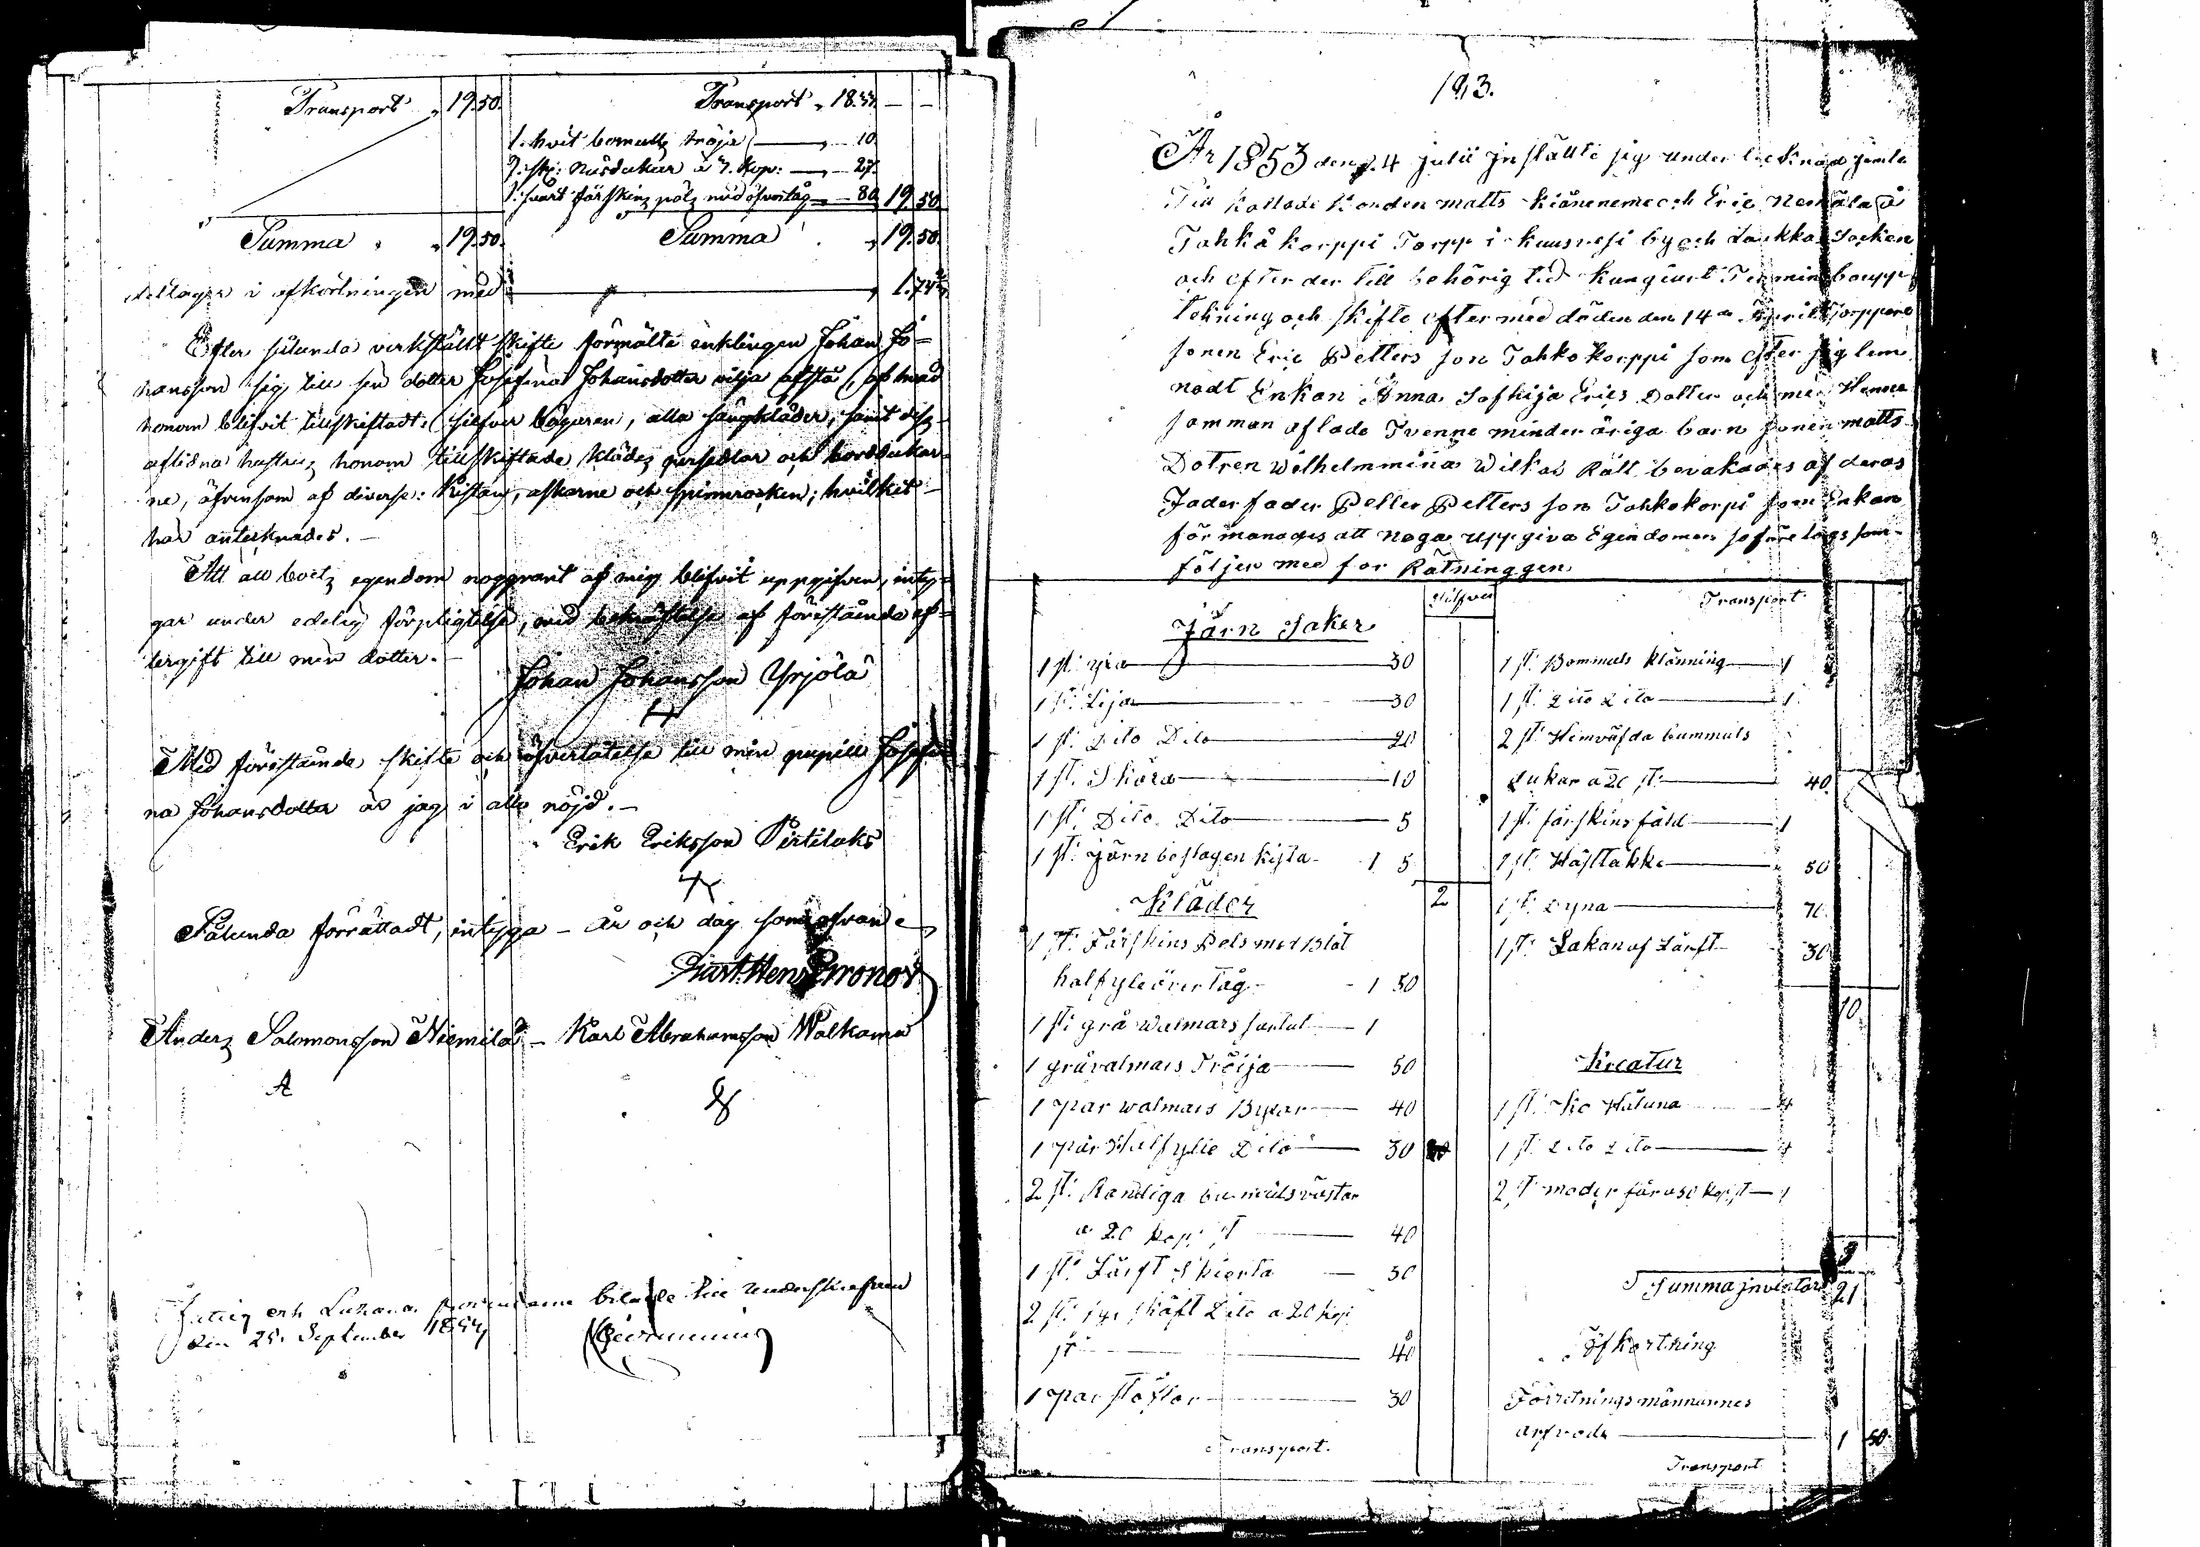 Transport „ 19.50.
Transport „ 18.33. — —
1. hvit bomulls tröja — „ — 10
st. näsdukar à 9. Kop: — „ — 27.
1. svart fårskins päls med öfvertåg — „ — 80 19 50
Summa „ 19.50.
Summa „ 19.50.
deltager i afkortningen med
Efter sålunda verkställt skifte förmälte enklingen Johan Jo=
hansson sig till sin dotter Josefina Johansdotter vilja afstå, af hvad
honom blifvit tillskiftadt: silfver bägaren, alla sängkläder, samt dess
aflidna hustrus honom tillskiftade klädes persedlar och borddukar=
ne, äfvensom af diverse: Kistan, askarne och spinnrocken; hvilket
här antecknades. —
Att all boets egendom noggrant af mig blifvit uppgifven, inty=
gar under edelig förpligtelse, med bekräftelse af förestående ef=
tergift till min dotter. —
Johan Johansson Yrjölä
Med förestående skifte och öfverlåtelse till min pupill Josefi
na Johansdotter är jag i allo nöjd. —
Erik Eriksson Pirtilaks
Sålunda förrättadt, intyga — År och dag som ofvan
Gust. Hens.
Anders Salomonsson Niemilä — Karl Abrahamsson Walkama
A
och Lukana bilade till underskrefven
den 25. September
193.
År 1853 den 4 julii Inställte sig under tecknad jemte
Till kallade Bonden Matts och Eric å
Tahkåkorppi Torpp i Kuusvesi by och Laukka Socken
och efter der till behörig tid Kungiort Termin boupp
tekning och skifte efter med döden den 14de April Torppare
sonen Eric Petters son Tahkokorppi som efter sig lem
nadt Enkan Anna Sofhija Erics Dotter och med Henne
samman aflade Tvenne minder åriga barn sonen Matts
Dotren Wilhelmmina Wilkas Rätt bevakades af deras
Fader fader Petter Petters son Tahkokorpi som Enkan
för manades att noga uppgiva Egendomen so före togs som
följer med for Rätninggen
Silfver
Transport
Järn Saker
1 st. yxa — 30
1 st. Lija — 30
1 st. Dito Dito — 20
1 st. Skära — 10
1 st. Dito Dito — 5
1 st. Järn beslagen kista — 1 5
2
Kläder
1 st. Fårskins Pels med Blåt
halfyleövertåg — 1 50
1 st. grå walmars surtut — 1
1 gråvalmars Tröija — 50
1 par walmars Byxor — 40
1 par Halfylle Dito — 30
2 st. Randiga bumulsvästar
a 20 kop st — 40
1 st. Lärft Skiorta — 50
2 st. skäft Dito a 20 kop
st — 40
1 par stöflor — 30
Transport.
1 st. Bommuls klänning — 1
1 st. Dito Dito — 1
2 st. Hemväfda bummuls
Dukar a 20 st. — 40
1 st. fårskins fäld — 1
1 st. Hästtäkke — 50
1 st. Dyna — 70
1 st. Lakan af Lärft — 30
10
Kreatur
1 st. Ko Haluna — 4
1 st. Dito Dito — 4
2 st moder får a 50 kop st — 1
9
Summa Inventarie 21
Afkortning
Förretningsmännernes
arfvode — 1 50
Transport